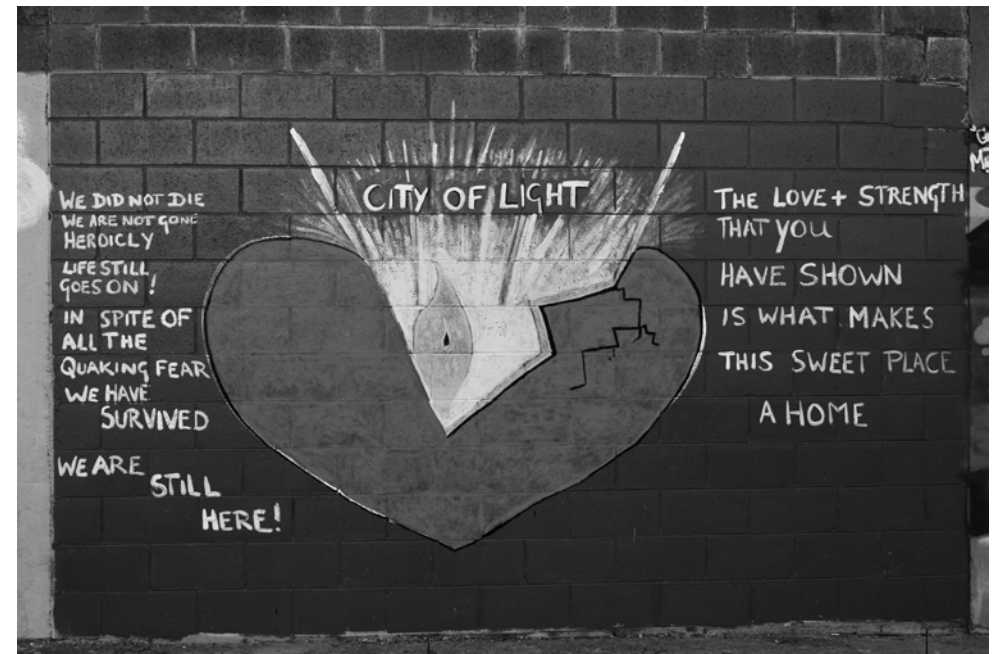 WE DID NOT DIE
WE ARE NOT GONE
HEROICLY
LIFE STILL
GOES ON!
IN SPITE OF
ALL THE
QUAKING FEAR
WE HAVE
SURVIVED
WE ARE
STILL
HERE!
CITY OF LIGHT
THE LOVE + STRENGTH
THAT YOU
HAVE SHOWN
IS WHAT MAKES
THIS SWEET PLACE
A HOME